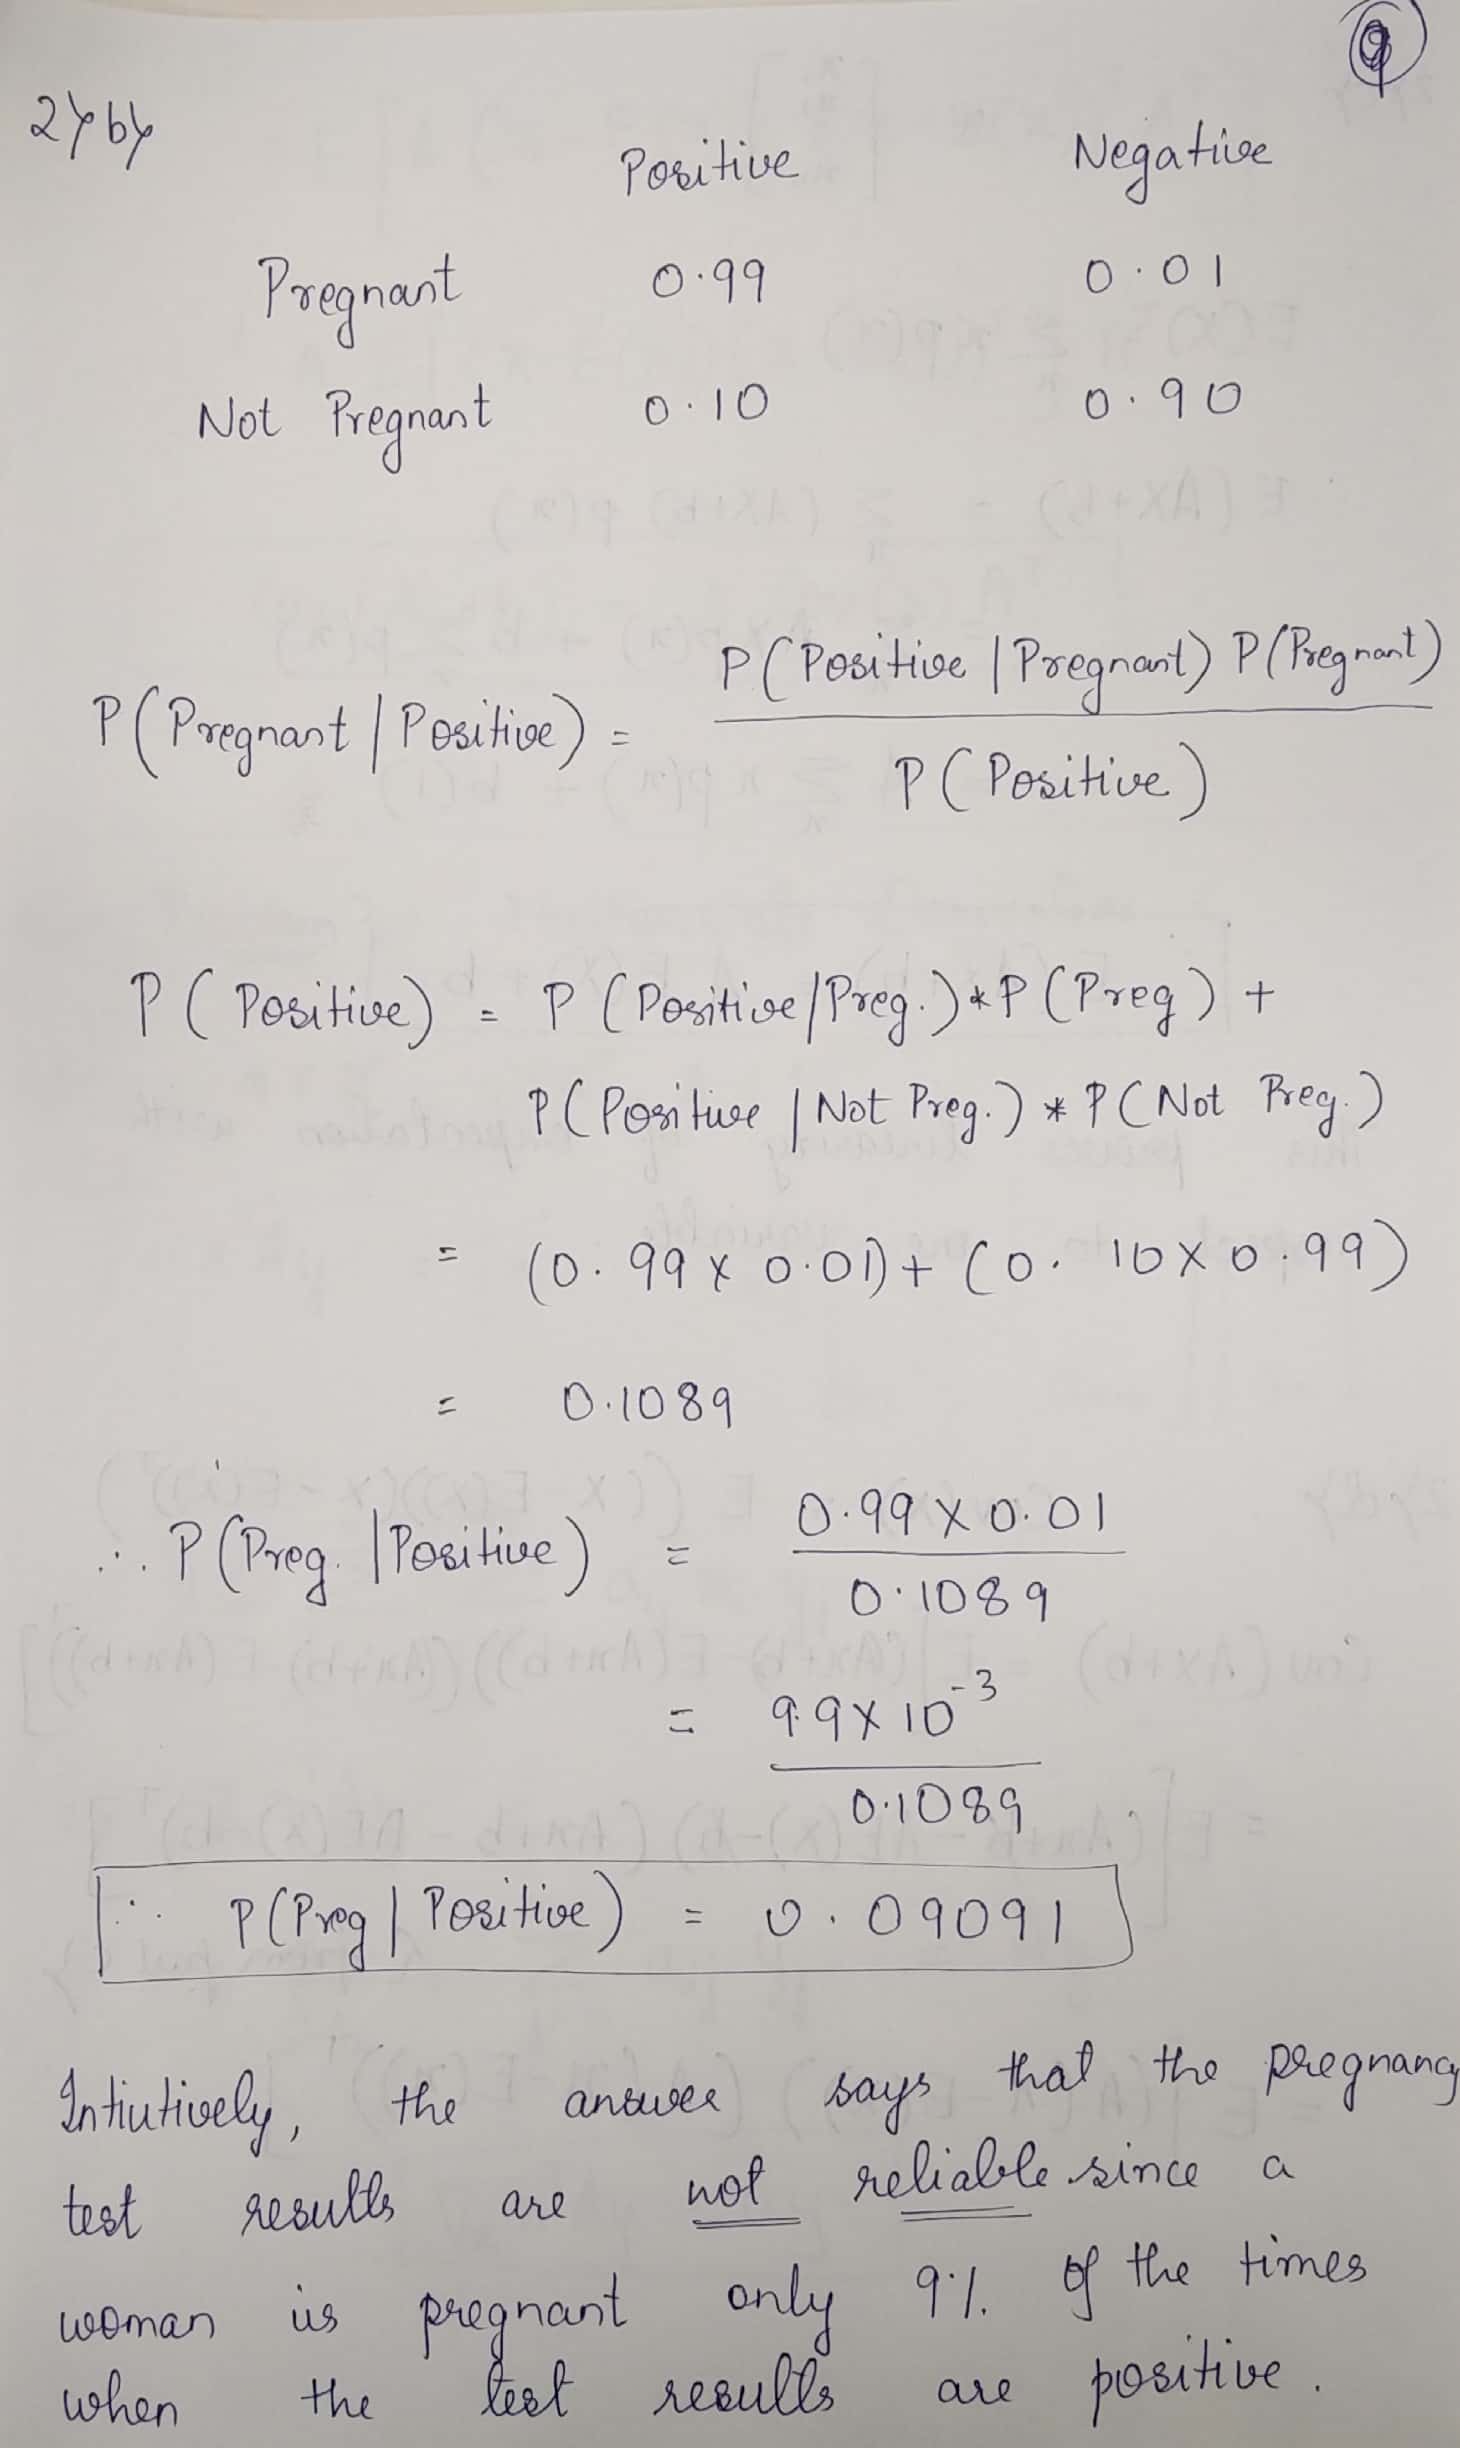 9
2) b)
Positive Negative
Pregnant 0.99 0.01
Not Pregnant 0.10 0.90
P(Positive | Pregnant) P(Pregnant)
P(Pregnant | Positive) =
P(Positive)
P(Positive) = P(Positive/Preg.)*P(Preg) +
P(Positive | Not Preg.) * P(Not Preg.)
= (0.99 x 0.01) + (0.10 x 0.99)
= 0.1089
∴ P(Preg. | Positive) = 0.99 x 0.01
0.1089
= 9.9 x 10^-3
0.1089
∴ P(Preg | Positive) = 0.09091
Intiutively, the answer says that the pregnancy
test results are not reliable since a
woman is pregnant only 9% of the times
when the test results are positive.